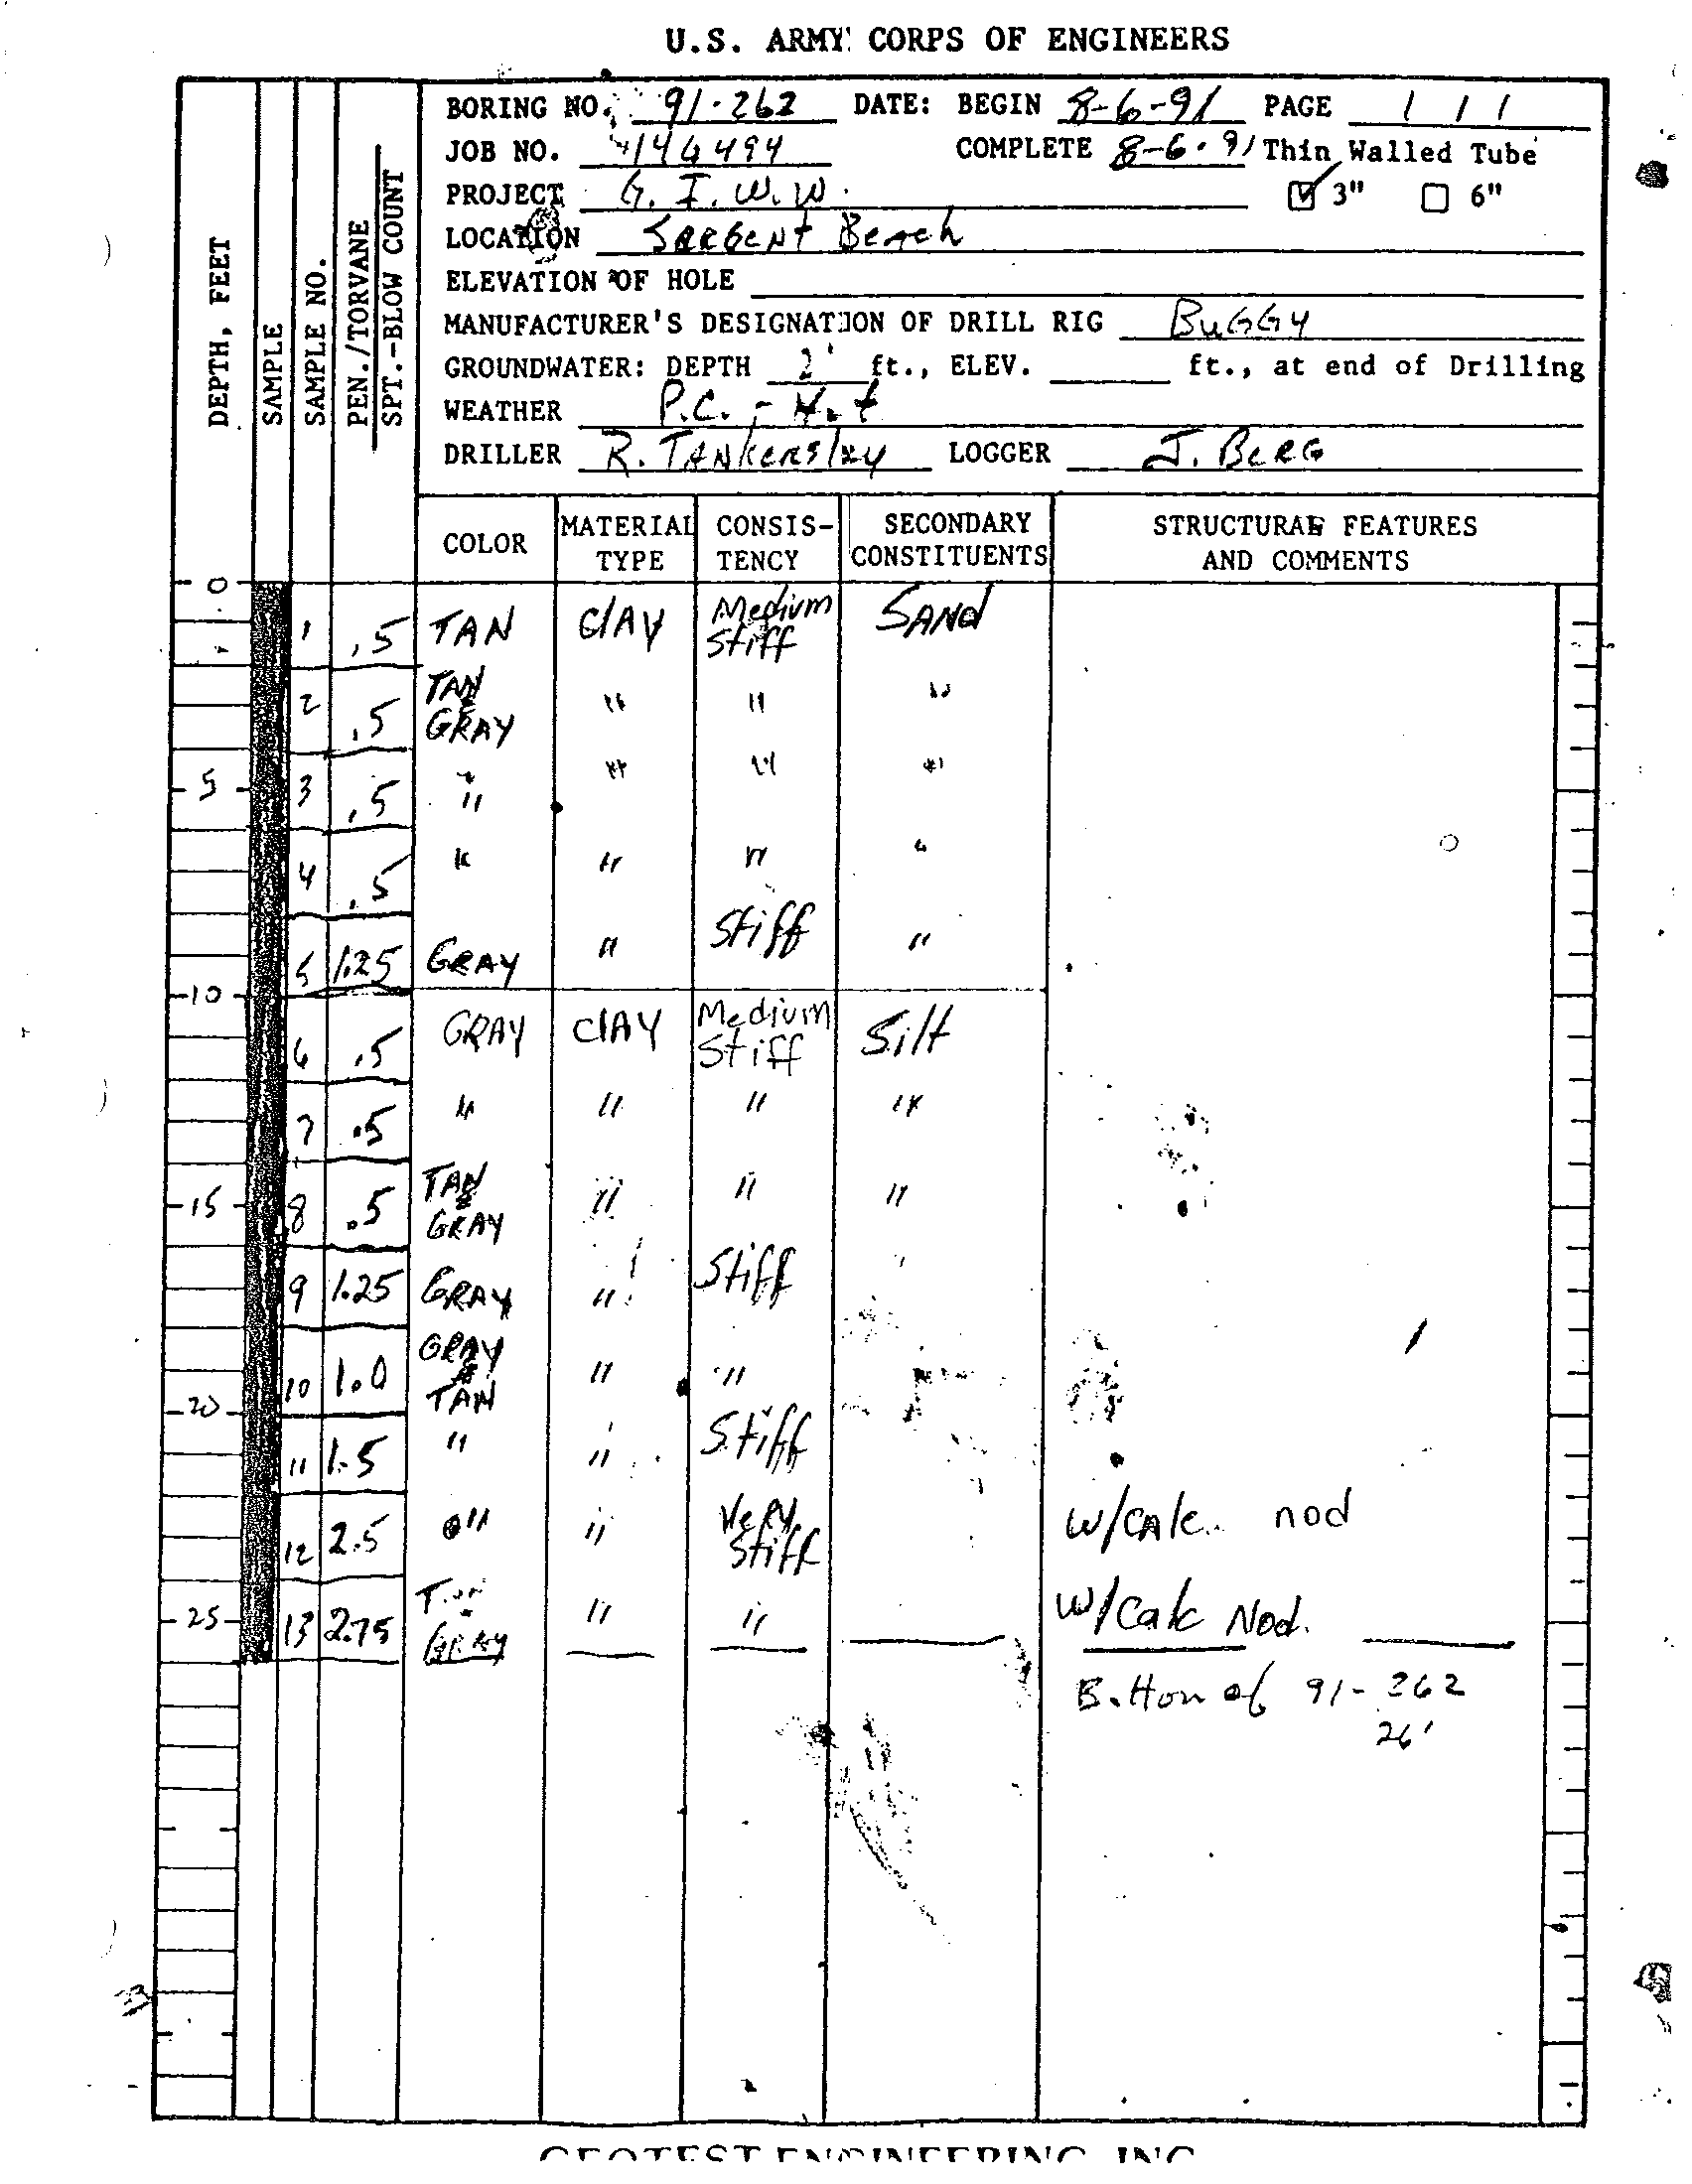 U.S. ARMY CORPS OF ENGINEERS
BORING NO. 91-262 DATE: BEGIN 8-6-91 PAGE 1 / 1
JOB NO. 4144494 COMPLETE 8-6-91 Thin Walled Tube
PROJECT G.I.W.W. 3" 6"
LOCATION SARGENT BEACH
ELEVATION OF HOLE
MANUFACTURER'S DESIGNATION OF DRILL RIG BUGGY
GROUNDWATER: DEPTH 2' ft., ELEV. ft., at end of Drilling
WEATHER P.C. - Hot
DRILLER R. TANKERSLEY LOGGER J. BERG
DEPTH, FEET
SAMPLE
SAMPLE NO.
PEN./TORVANE
SPT.-BLOW COUNT
COLOR MATERIAL TYPE CONSIS-TENCY SECONDARY CONSTITUENTS STRUCTURAL FEATURES AND COMMENTS
0
1 .5 TAN CLAY Medium Stiff SAND
2 .5 TAN & GRAY " " "
5 3 .5 " " " "
4 .5 " " " "
5 1.25 GRAY " Stiff "
10
6 .5 GRAY CLAY Medium Stiff Silt
7 .5 " " " "
15 8 .5 TAN & GRAY " " "
9 1.25 GRAY " Stiff "
10 1.0 GRAY & TAN " "
20
11 1.5 " " Stiff
12 2.5 " " Very Stiff w/CALC. nod
25 13 2.75 TAN & GRAY " " w/Calc Nod.
Bottom of 91-262
26'
GEOTEST ENGINEERING, INC.